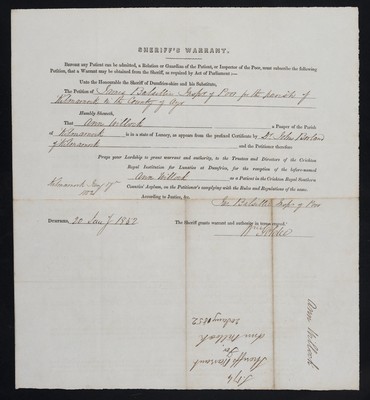 SHERIFF'S WARRANT.
BEFORE any Patient can be admitted, a Relation or Guardian of the Patient, or Inspector of the Poor, must subscribe the following
Petition, that a Warrant may be obtained from the Sheriff, as required by Act of Parliament :—
Unto the Honourable the Sheriff of Dumfries-shire and his Substitute,
The Petition of of Poor for the parish of
Kilmarnock in the County of Ayr
Humbly Sheweth,
That Ann Willock a Pauper of the Parish
of Kilmarnock is in a state of Lunacy, as appears from the prefixed Certificate by Dr John
of Kilmarnock and the Petitioner therefore
Prays your Lordship to grant warrant and authority, to the Trustees and Directors of the Crichton
Royal Institution for Lunatics at Dumfries, for the reception of the before-named
Ann Willock as a Patient in the Crichton Royal Southern
Counties' Asylum, on the Petitioner's complying with the Rules and Regulations of the same.
Kilmarnock
1852
According to Justice, &c.
of Poor
DUMFRIES, 20 Jany 1852 The Sheriff grants warrant and authority in terms
Ann Willock
Sheriff's Warrant
for
Ann Willock
1852